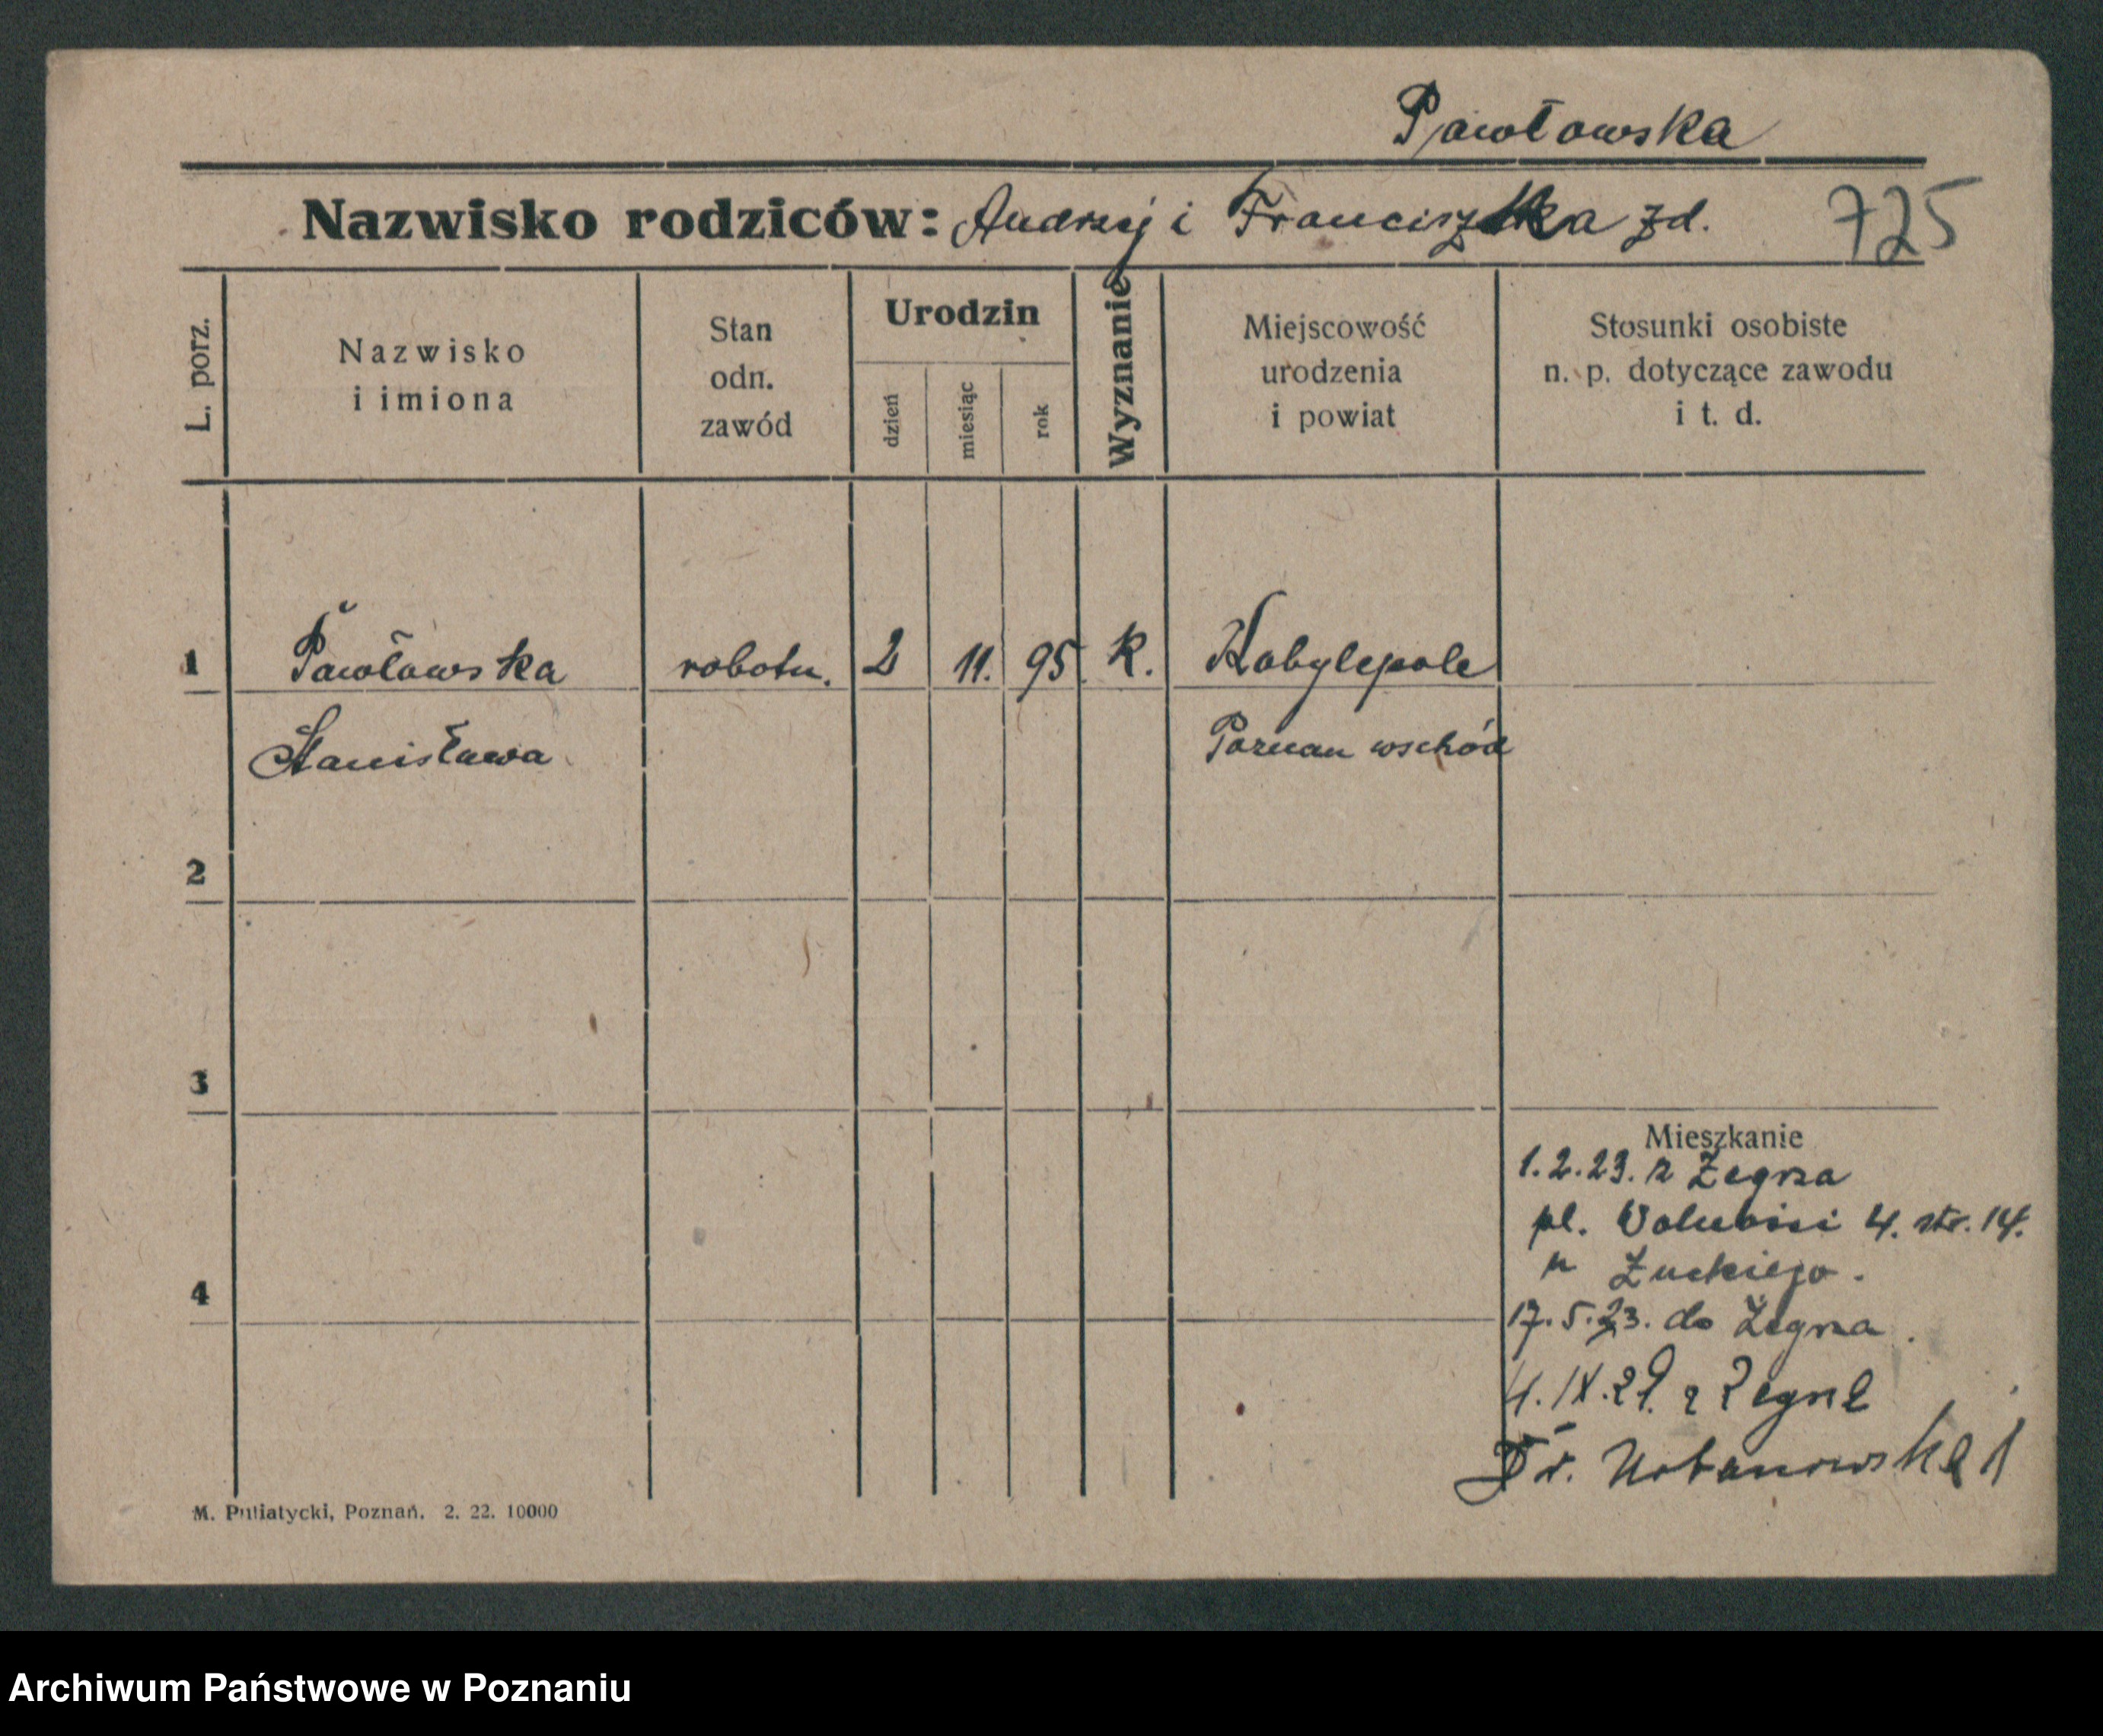 Pawłowska
Nazwisko rodziców: Andrzej i Franciszka zd. 725
L. porz.
Nazwisko i imiona
Stan odn. zawód
Urodzin
dzień
miesiąc
rok
Wyznanie
Miejscowość urodzenia i powiat
Stosunki osobiste n. p. dotyczące zawodu i t. d.
1 Pawłowska robotn. 2 11. 95 k. Kobylepole
Stanisława Poznań wschód
2
3
Mieszkanie
1.2.23. z Żegrza
pl. 4. str. 14.
u
4
17.5.23. do Żegrza.
4.IX.29. z Żegrz
Dr. Urbanowska 1
M. Putiatycki, Poznań. 2. 22. 10000
Archiwum Państwowe w Poznaniu